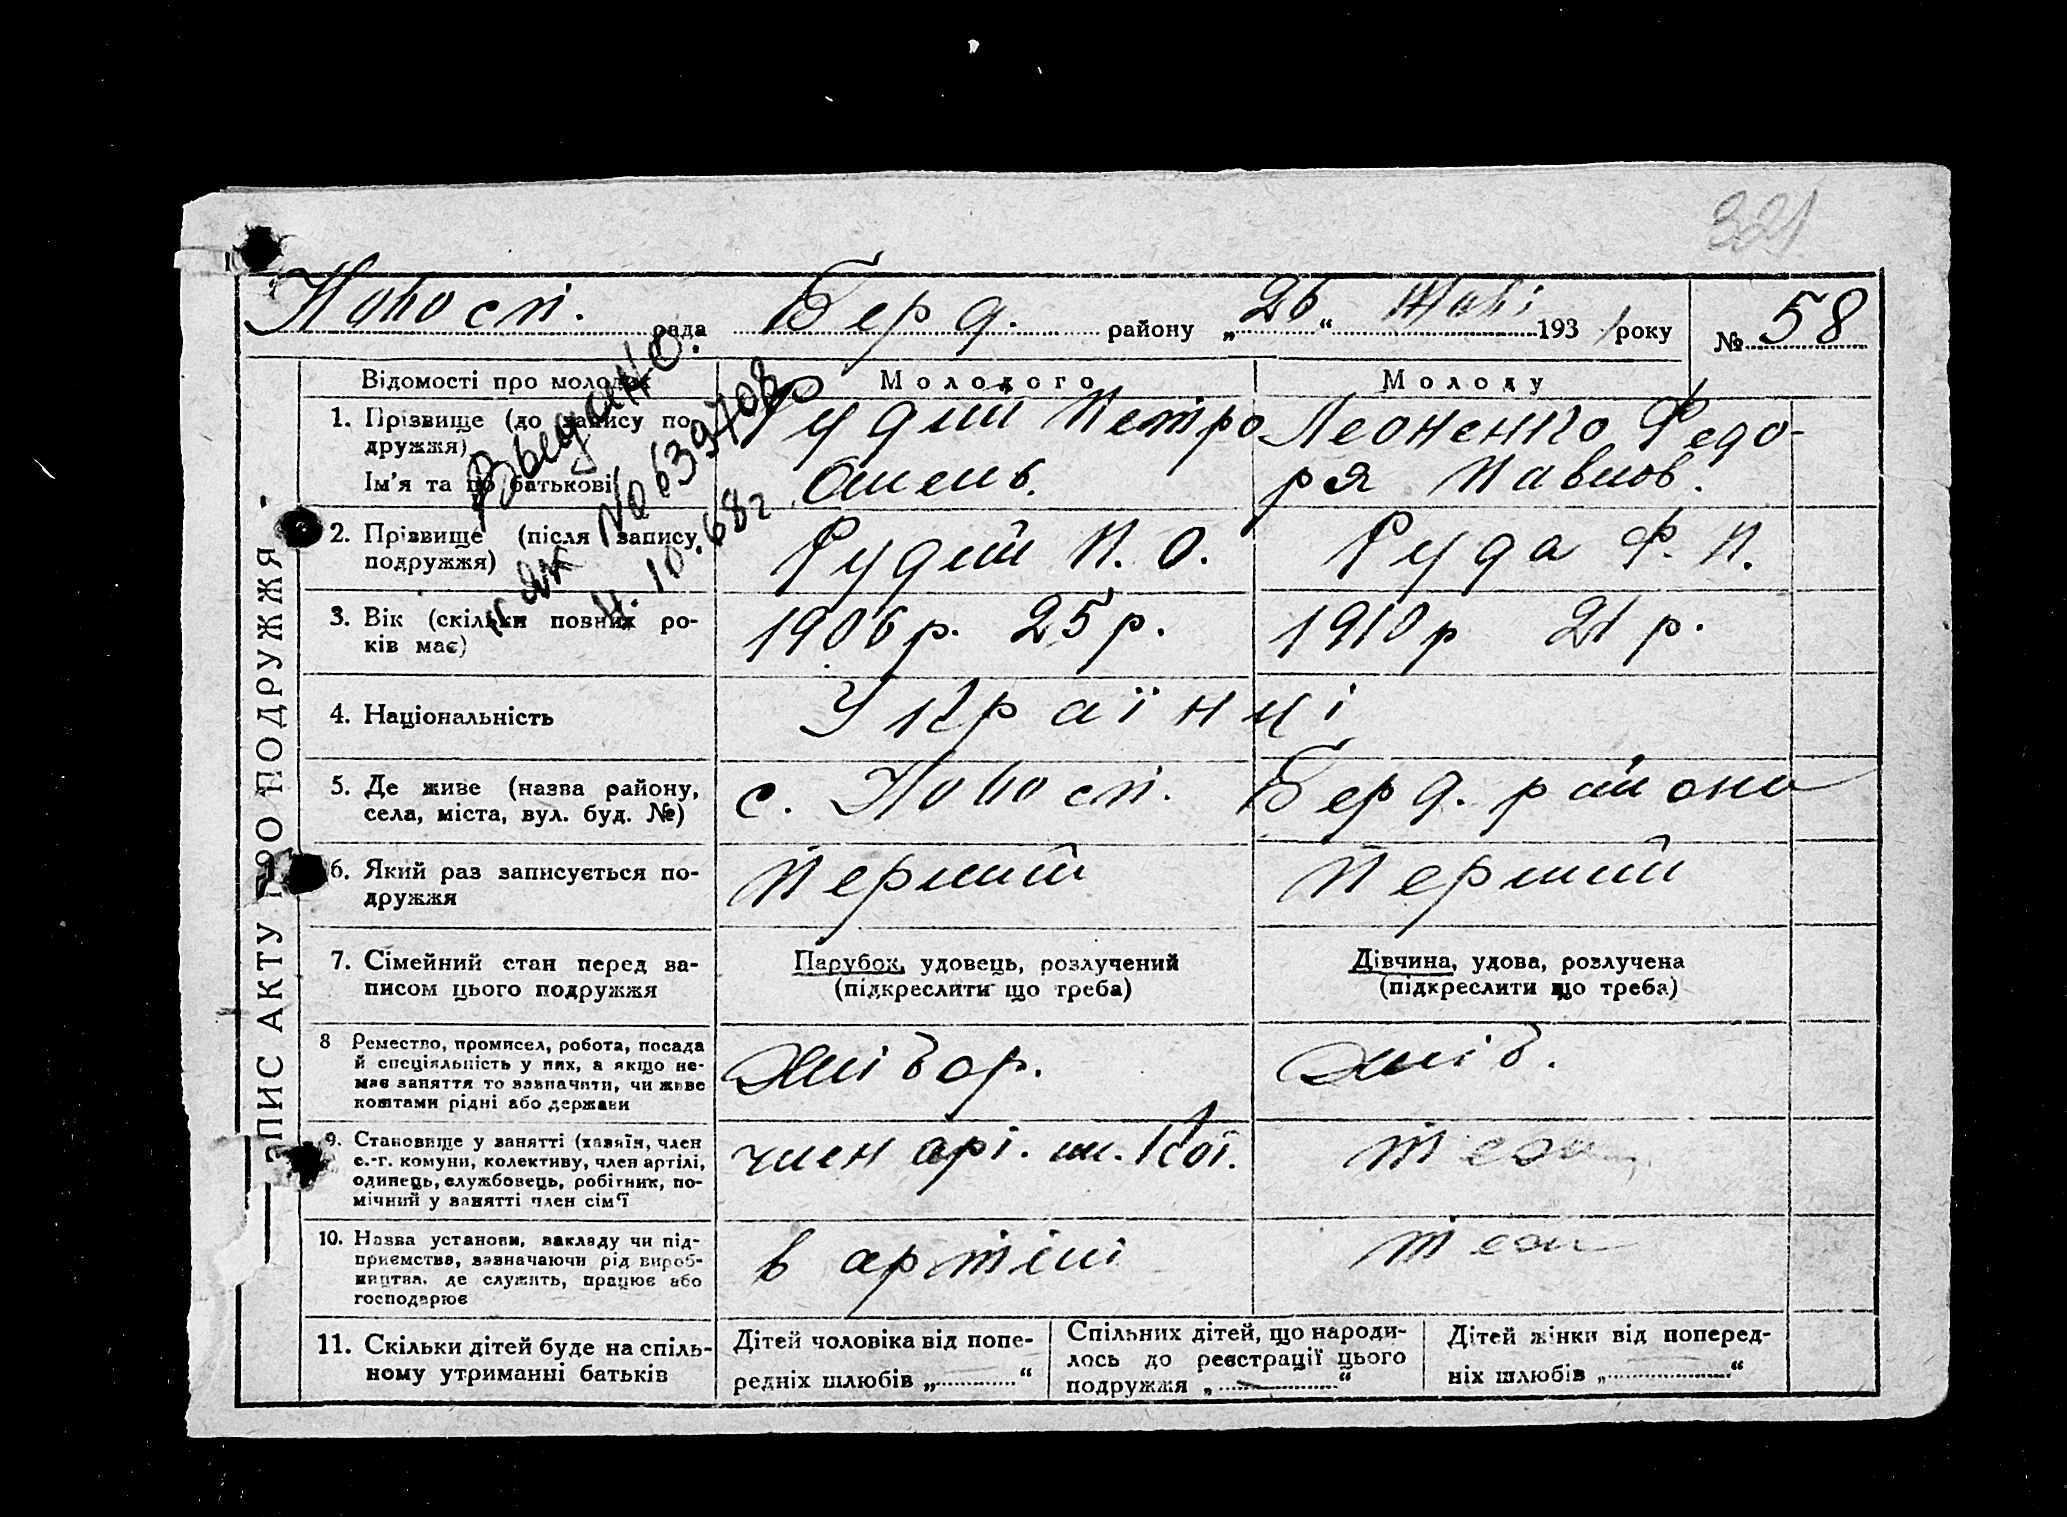 321
Новосп. рада Берд. району „26“ Жовт 1931 року № 58
ЗАПИС АКТУ ПРО ПОДРУЖЖЯ -
Відомості про молодих Молодого Молоду
1. Прізвище (до запису по-
дружжя)
Ім'я та по батькові
Рудий Петро
Омельв.
Леоненко Федо-
ря Павлов.
2. Прізвище (після запису
подружжя)
Рудий П. О. Руда Ф. П.
3. Вік (скільки повних ро-
ків має)
1906 р. 25 р. 1910 р 21 р.
4. Національність Українці
5. Де живе (назва району,
села, міста, вул. буд. №)
с. Новосп. Берд. району
6. Який раз записується по-
дружжя
Перший Перший
7. Сімейний стан перед за-
писом цього подружжя
Парубок, удовець, розлучений
(підкреслити що треба)
Дівчина, удова, розлучена
(підкреслити що треба)
8 Ремество, промисел, робота, посада
й спеціяльність у них, а якщо не-
має заняття то зазначити, чи живе
коштами рідні або держави
Хлібор. Хліб.
9. Становище у занятті (хазяїн, член
с.-г. комуни, колективу, член артілі,
одинець, службовець, робітник, по-
мічний у занятті член сім'ї
член арт. ім.
10. Назва установи, закладу чи під-
приємства, зазначаючи рід вироб-
ництва, де служить, працює або
господарює
в артілі
11. Скільки дітей буде на спіль-
ному утриманні батьків
Дітей чоловіка від попе-
редніх шлюбів „ “
Спільних дітей, що народи-
лось до реєстрації цього
подружжя „ “
Дітей жінки від поперед-
ніх шлюбів „ “
№ 639708
10.68г